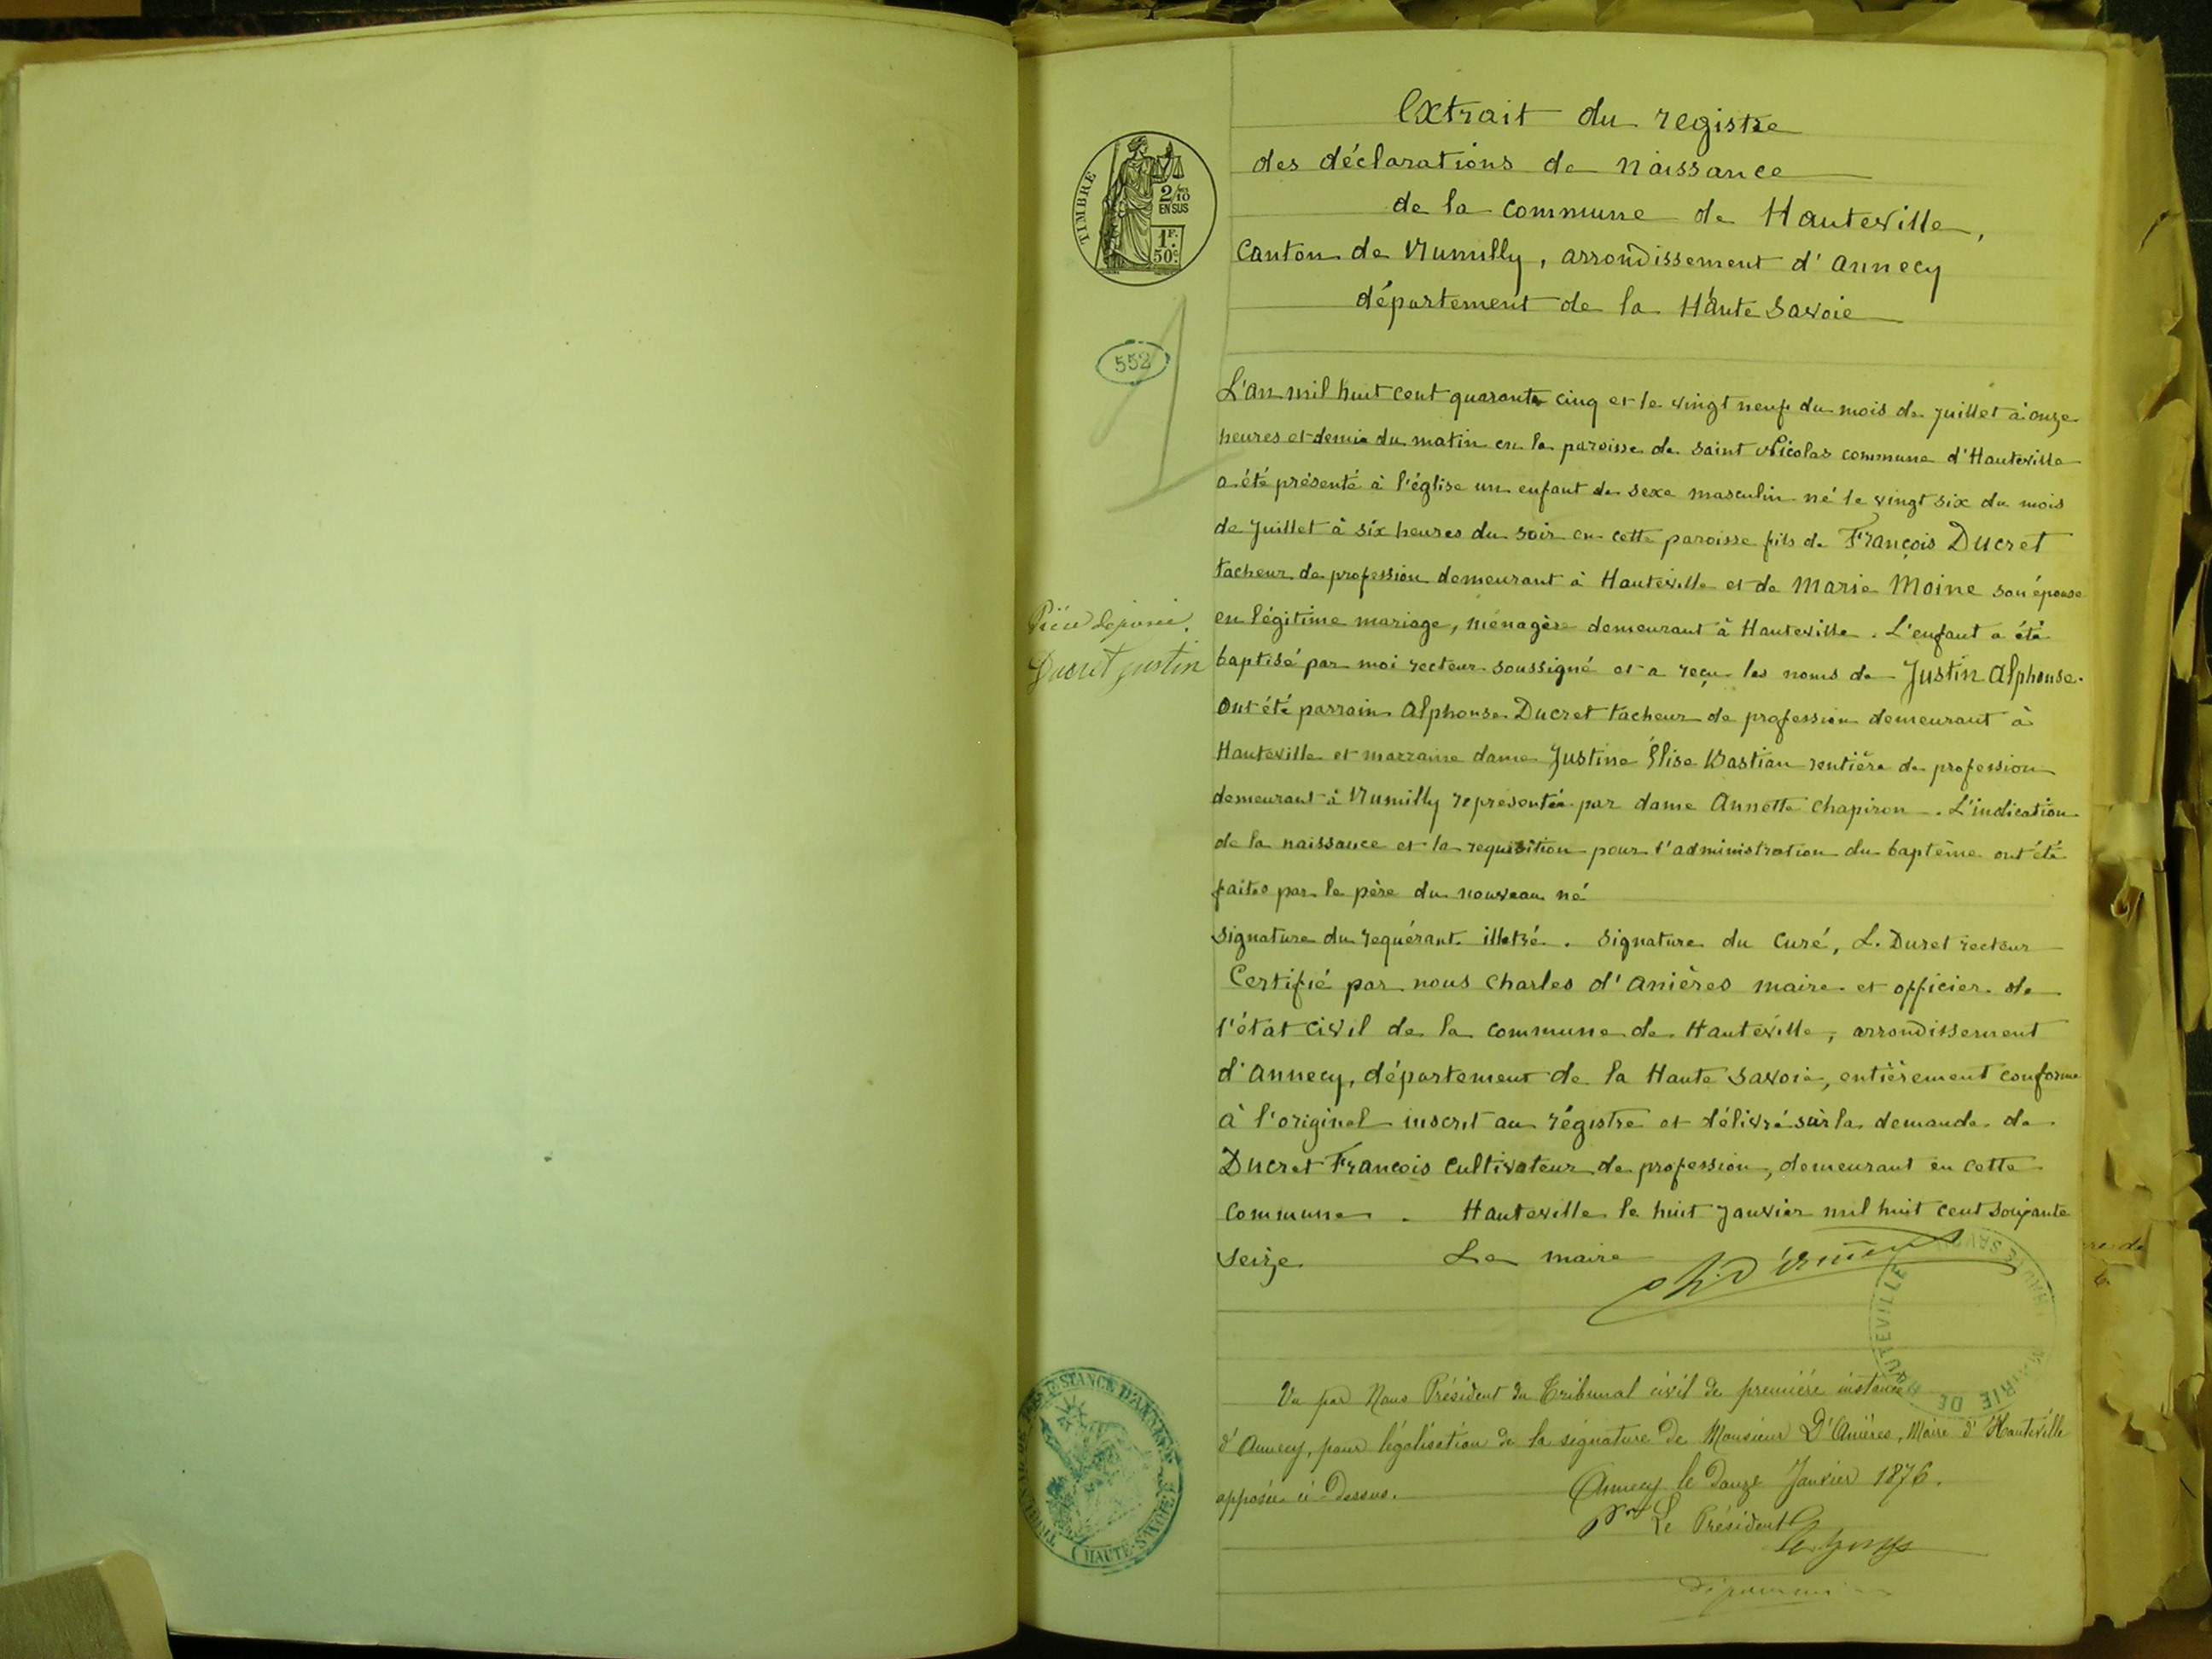 Extrait du registre
des déclarations de naissance
de la commune de Hauteville,
Canton de Rumilly, arrondissement d'Annecy
département de la Haute Savoie
TIMBRE
2/10
EN SUS
1F.
50c.
552
L'an mil huit cent quarante cinq et le vingt neuf du mois de juillet à onze
heures et demie du matin en la paroisse de Saint Nicolas commune d'Hauteville
a été présenté à l'église un enfant de sexe masculin né le vingt six du mois
de Juillet à six heures du soir en cette paroisse fils de François Ducret
tacheur de profession demeurant à Hauteville et de Marie Moine son épouse
en légitime mariage, ménagère demeurant à Hauteville. L'enfant a été
baptisé par moi recteur soussigné et a reçu les noms de Justin Alphonse.
Ont été parrain Alphonse Ducret tacheur de profession demeurant à
Hauteville et marraine dame Justine Élise Bastian rentière de profession
demeurant à Rumilly représentée par dame Annette Chapiron. L'indication
de la naissance et la requisition pour l'administration du baptême ont été
faites par le père du nouveau né
Signature du requérant. illetré. Signature du Curé, L. Duret recteur
Certifié par nous Charles d'Anières maire et officier de
l'état civil de la commune de Hauteville, arrondissement
d'Annecy, département de la Haute Savoie, entièrement conforme
à l'original inscrit au régistre et délivré sur la demande de
Ducret François Cultivateur de profession, demeurant en cette
Commune. Hauteville le huit Janvier mil huit cent soixante
seize. Le maire
Ch. d'Anières
Pièce déposée.
Ducret Justin
MAIRIE DE HAUTEVILLE HAUTE SAVOIE
Vu par Nous Président du Tribunal civil de première instance
d'Annecy, pour légalisation de la signature de Monsieur D'Anières, Maire d'Hauteville
apposée ci-dessus. Annecy le douze Janvier 1876.
Pr Le Président
TRIBUNAL DE 1ERE INSTANCE D'ANNECY
(HAUTE-SAVOIE)